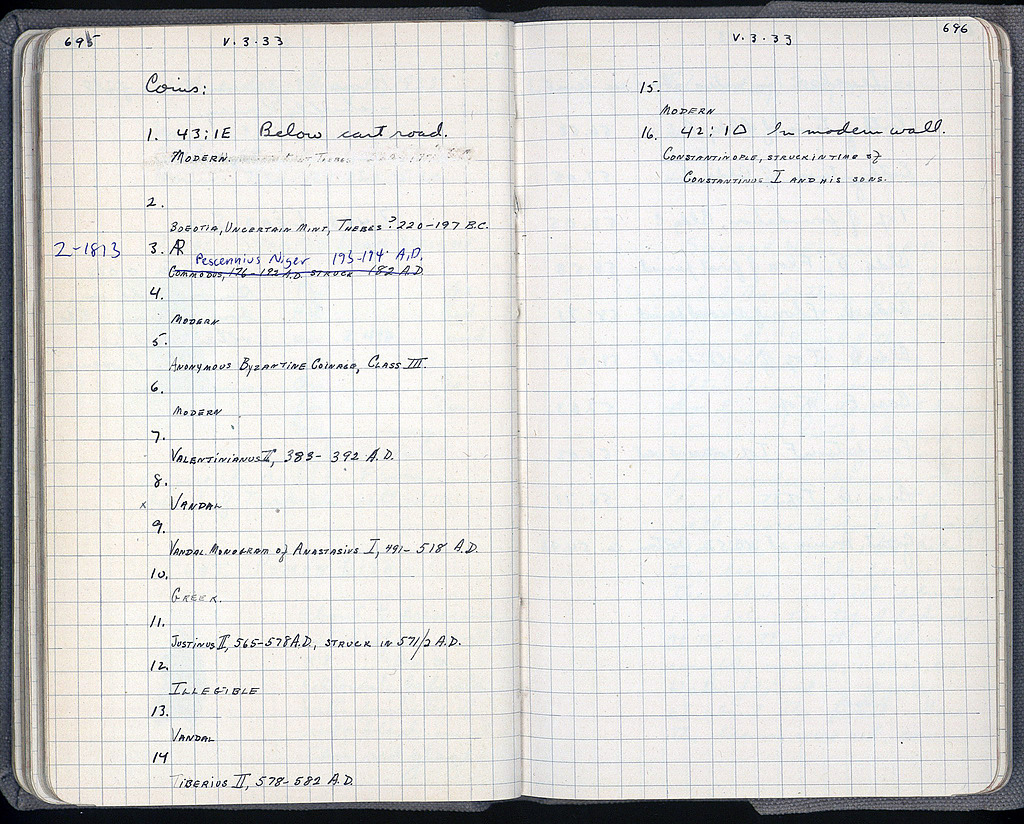 695
V.3.33
Coins:
1. 43:1E Below cart road.
MODERN.
2.
BOEOTIA, UNCERTAIN MINT, THEBES? 220-197 B.C.
2-1813
3. AR
Pescennius Niger 193-194 A.D.
COMMODUS, 176-192 A.D. STRUCK 182 A.D
4.
MODERN
5.
ANONYMOUS BYZANTINE COINAGE, CLASS III.
6.
MODERN
7.
VALENTINIANUS II, 383-392 A.D.
8.
x VANDAL
9.
VANDAL. MONOGRAM of ANASTASIUS I, 491-518 A.D.
10.
GREEK.
11.
JUSTINUS II, 565-578 A.D., STRUCK IN 571/2 A.D.
12.
ILLEGIBLE
13.
VANDAL
14
TIBERIUS II, 578-582 A.D.
696
V.3.33
15.
MODERN
16. 42:1Δ In modern wall.
CONSTANTINOPLE, STRUCK IN TIME of
CONSTANTINUS I AND HIS SONS.